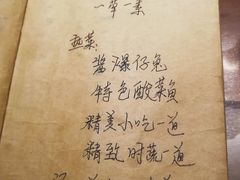 一荤一素
热菜:
酱爆仔兔
特色酸菜鱼
精美小吃一道
精致时蔬一道